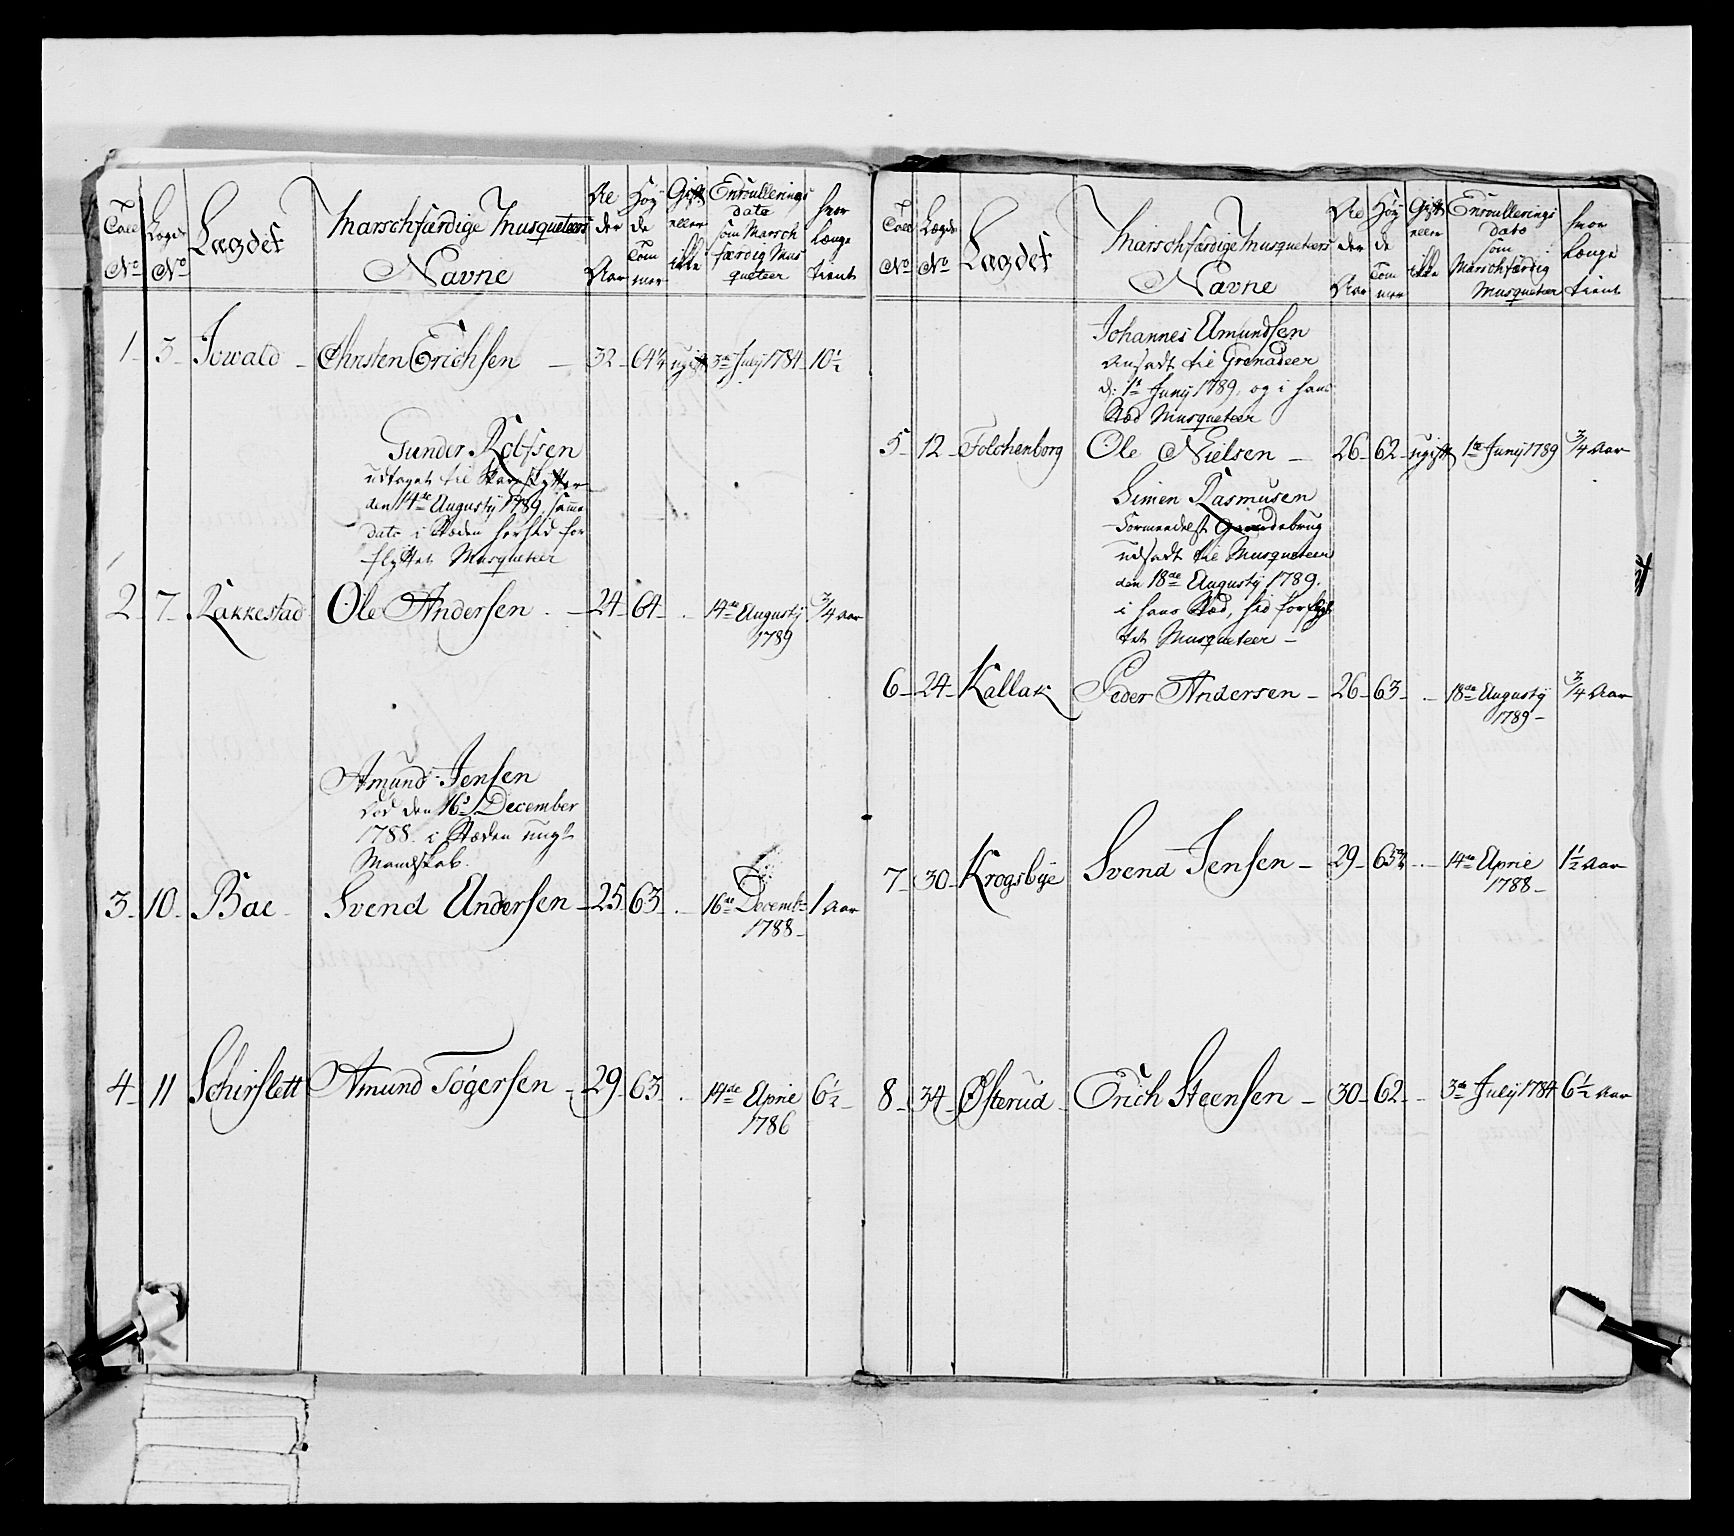 Tall No
Lægds No
Lægdet
Marschfærdige Musqueteers Navne
Alder Aar
Høyde Tommer
Gift eller ikke
Enroullerings dato som Marschfærdig Musqueteer
hvor længe tient
1 3 Iowald Christen Erichsen 32 64¼ ugift 3de July 1784 10½
Gunder Rolfsen
udtaget til Skarpskytter
den 14de Augusty 1789, samme
dato i Stæden hersted for
flyttet Musqueteer
2 7 Rakkestad Ole Andersen 24 64 14de Augustij 1789 ¾ Aar
Amund Jensen
død den 16d December
1788. i Stæden ungt
Mandskab.
3 10 Bae Svend Andersen 25 63 16de Decemb: 1788 1 Aar
4 11 Schirslett Amund Tøgersen 29 63 14de Aprie 1786 6½
Tall No
Lægds No
Lægdet
Marschfærdige Musqueteers Navne
Alder Aar
Høyde Tommer
Gift eller ikke
Enroullerings dato som Marschfærdig Musqueteer
hvor længe tient
Johannes Amundsen
Ansadt til Grenadeer
d: 1t Junij 1789, og i hans
Stæd Musqueteer
5 12 Folchenborg Ole Nielsen 26 62 ugift 1te Junij 1789 ¾ Aar
Simen Rasmusen
Formedelst Gaardebrug
udsadt til Musqueteer
den 18de Augustij 1789.
i hans Stæd, hid forflyt
tet Musqueteer
6 24 Kallak Peder Andersen 26 63 18de Augustij 1789 ¾ Aar
7 30 Krogsbye Svend Jensen 29 63¾ 14de Aprie 1788 1½ Aar
8 34 Østerud Erich Steensen 30 62 3de Julij 1784 6½ Aar